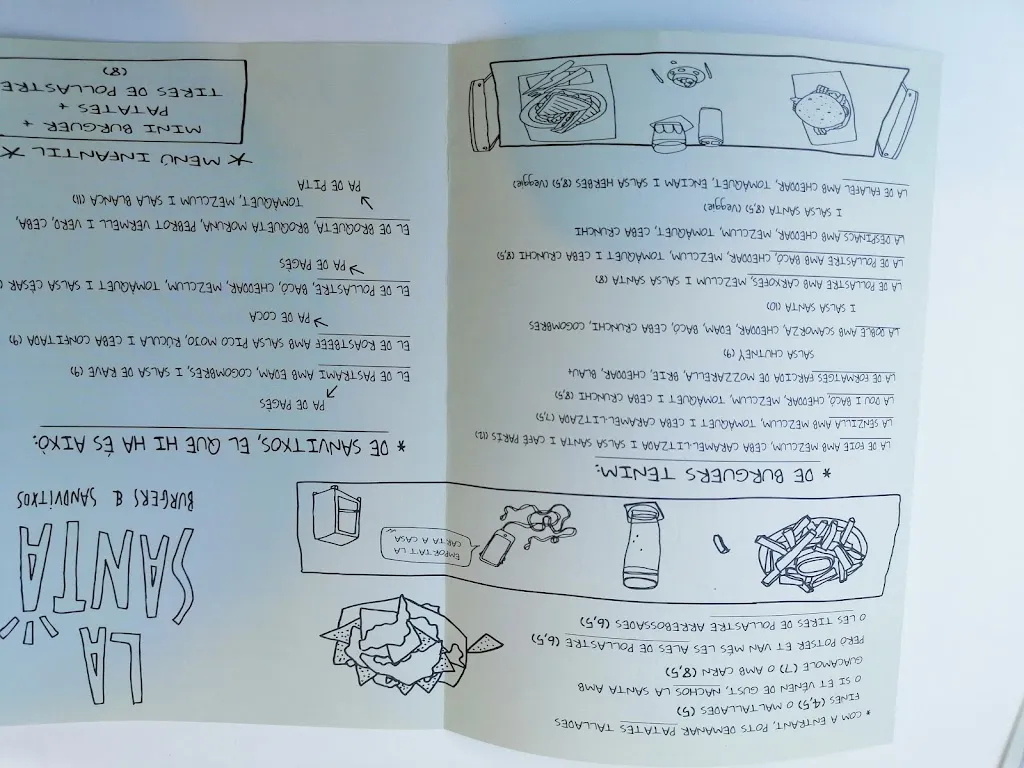 * COM A ENTRANT, POTS DEMANAR PATATES TALLADES
FINES (4,5) O MALTALLADES (5)
O SI ET VÉNEN DE GUST, NACHOS LA SANTA AMB
GUACAMOLE (7) O AMB CARN (8,5)
PERO POTSER ET VAN MÉS LES ALES DE POLLASTRE (6,5)
O LES TIRES DE POLLASTRE ARREBOSSADES (6,5)
EMPORTA'T LA
CARTA A CASA
* DE BURGUERS TENIM:
LA DE FOIE AMB MEZCLUM, CEBA CARAMEL·LITZADA I SALSA SANTA I CAFÉ PARÍS (12)
LA SENZILLA AMB MEZCLUM, TOMÀQUET I CEBA CARAMEL·LITZADA (7,5)
LA DOU I BACÓ, CHEDDAR, MEZCLUM, TOMÀQUET I CEBA CRUNCHI (8,5)
LA DE FORMATGES FARCIDA DE MOZZARELLA, BRIE, CHEDDAR, BLAU+
SALSA CHUTNEY (9)
LA DOBLE AMB SCAMORZA, CHEDDAR, EDAM, BACÓ, CEBA CRUNCHI, COGOMBRES
I SALSA SANTA (10)
LA DE POLLASTRE AMB CARXOFES, MEZCLUM I SALSA SANTA (8)
LA DE POLLASTRE AMB BACÓ, CHEDDAR, MEZCLUM, TOMÀQUET I CEBA CRUNCHI (8,5)
LA D'ESPINACS AMB CHEDDAR, MEZCLUM, TOMÀQUET, CEBA CRUNCHI
I SALSA SANTA (8,5) (Veggie)
LA DE FALAFEL AMB CHEDDAR, TOMÀQUET, ENCIAM I SALSA HERBES (8,5) (Veggie)
LA
SANTA
BURGERS & SANDVITXOS
* DE SANVITXOS, EL QUE HI HA ÉS AIXÒ:
PA DE PAGÈS
EL DE PASTRAMI AMB EDAM, COGOMBRES, I SALSA DE RAVE (9)
EL DE ROASTBEEF AMB SALSA PICO MOJO, RÚCULA I CEBA CONFITADA (9)
PA DE COCA
EL DE POLLASTRE, BACÓ, CHEDDAR, MEZCLUM, TOMÀQUET I SALSA CÈSAR (
PA DE PAGÈS
EL DE BROQUETA, BROQUETA MORUNA, PEBROT VERMELL I VERD, CEBA,
TOMÀQUET, MEZCLUM I SALA BLANCA (11)
PA DE PITA
* MENÚ INFANTIL *
MINI BURGUER +
PATATES +
TIRES DE POLLASTRE
(8)